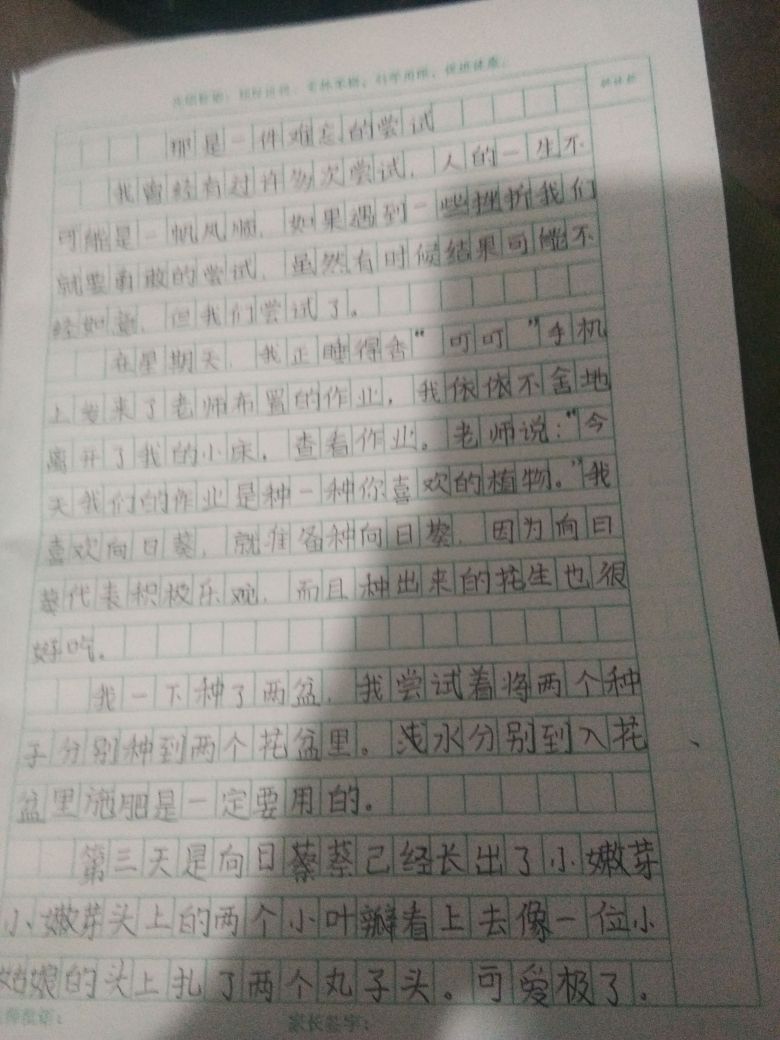 那是一件难忘的尝试
我曾经有过许多次尝试，人的一生不
可能是一帆风顺，如果遇到一些挫折我们
就要勇敢的尝试，虽然有时候结果可能不
经如意，但我们尝试了。
在星期天，我正睡得香“叮叮”手机
上发来了老师布置的作业，我依依不舍地
离开了我的小床，查看作业。老师说：“今
天我们的作业是种一种你喜欢的植物。”我
喜欢向日葵，就准备种向日葵，因为向日
葵代表积极乐观，而且种出来的花生也很
好吃。
我一下种了两盆，我尝试着将两个种
子分别种到两个花盆里。浅水分别到入花
盆里施肥是一定要用的。
第三天是向日葵已经长出了小嫩芽
小嫩芽头上的两个小叶瓣看上去像一位小
姑娘的头上扎了两个丸子头。可爱极了。
家长签字：